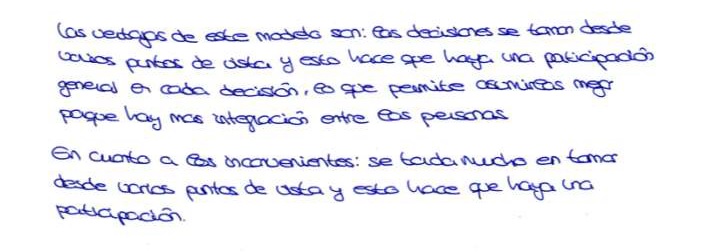 Las ventajas de este modelo son: las decisiones se toman desde
varios puntos de vista y esto hace que haya una participación
general en cada decisión, lo que permite asumirlas mejor
porque hay mas integración entre las personas
En cuanto a los inconvenientes: se tarda mucho en tomar
desde varios puntos de vista y esto hace que haya una
participación.